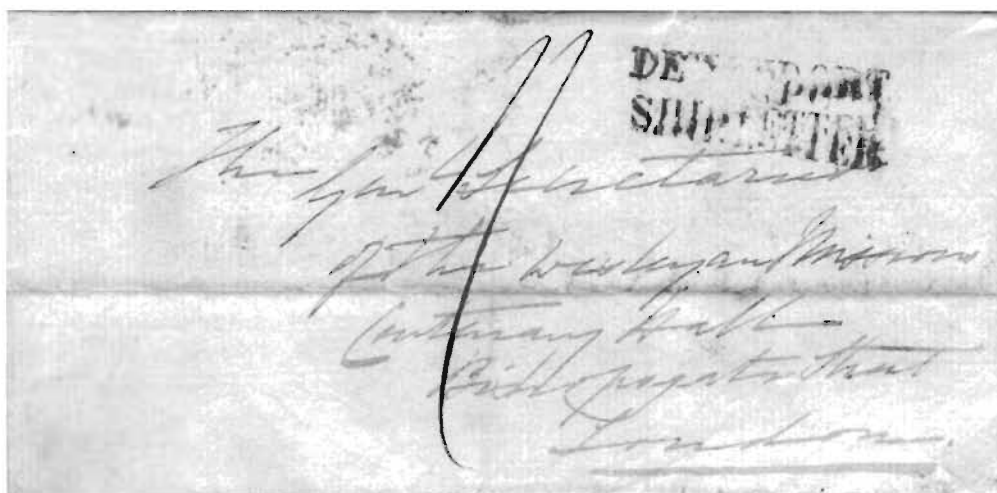 DEVONPORT
SHIP LETTER
The Gen Secretaries
of the Wesleyan Missions
Centenary Hall
Bishopsgate Street
London.